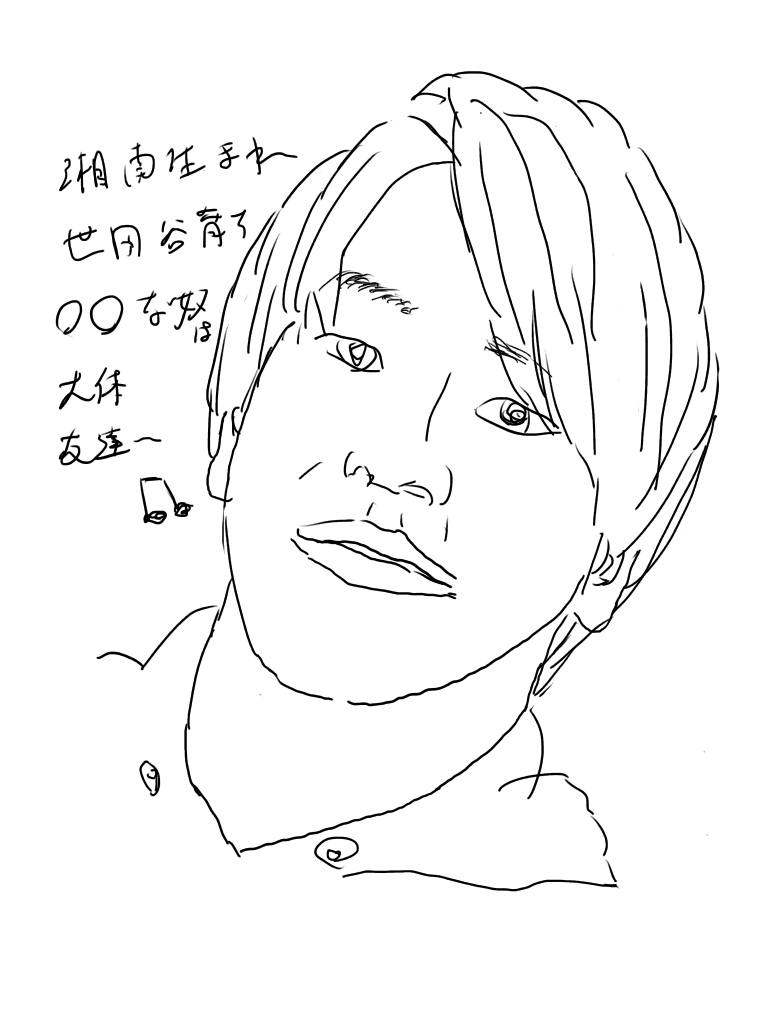 湘南生まれ〜
世田谷育ち
〇〇な奴は
大体
友達〜